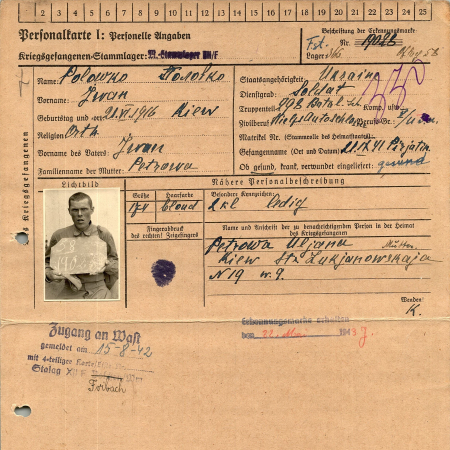 1 2 3 4 5 6 7 8 9 10 11 12 13 14 15 16 17 18 19 20 21 22 23 24 25
Personalkarte I: Personelle Angaben
Beschriftung der Erkennungsmarke
Kriegsgefangenen-Stammlager: M.-Stammlager XII/F
Nr.
Lager:
des Kriegsgefangenen
Name: Polowko Половко
Staatsangehörigkeit: Ukraine
Vorname: Iwan
Dienstgrad: Soldat
Truppenteil: Komp. usw.:
Geburtstag und -ort: 21.VI.1916 Kiew
Zivilberuf: Berufs-Gr.:
Religion: Orth.
Matrikel Nr. (Stammrolle des Heimatstaates):
Vorname des Vaters: Iwan
Gefangennahme (Ort und Datum): Pirjatin
Familienname der Mutter: Petrowa
Ob gesund, krank, verwundet eingeliefert: gesund
Lichtbild
Nähere Personalbeschreibung
Größe Haarfarbe Besondere Kennzeichen:
174 Blond ledig
Fingerabdruck des rechten! Zeigefingers
Name und Anschrift der zu benachrichtigenden Person in der Heimat des Kriegsgefangenen
Petrowa Uljana Mutter
Kiew Str. Lukjanowskaja
N 19 w. 9.
Wenden!
K.
Zugang an Wast
gemeldet am 15-8-42
mit 4-teiliger
Stalag XII F
Forbach
Erkennungsmarke erhalten
vom 22. 1943